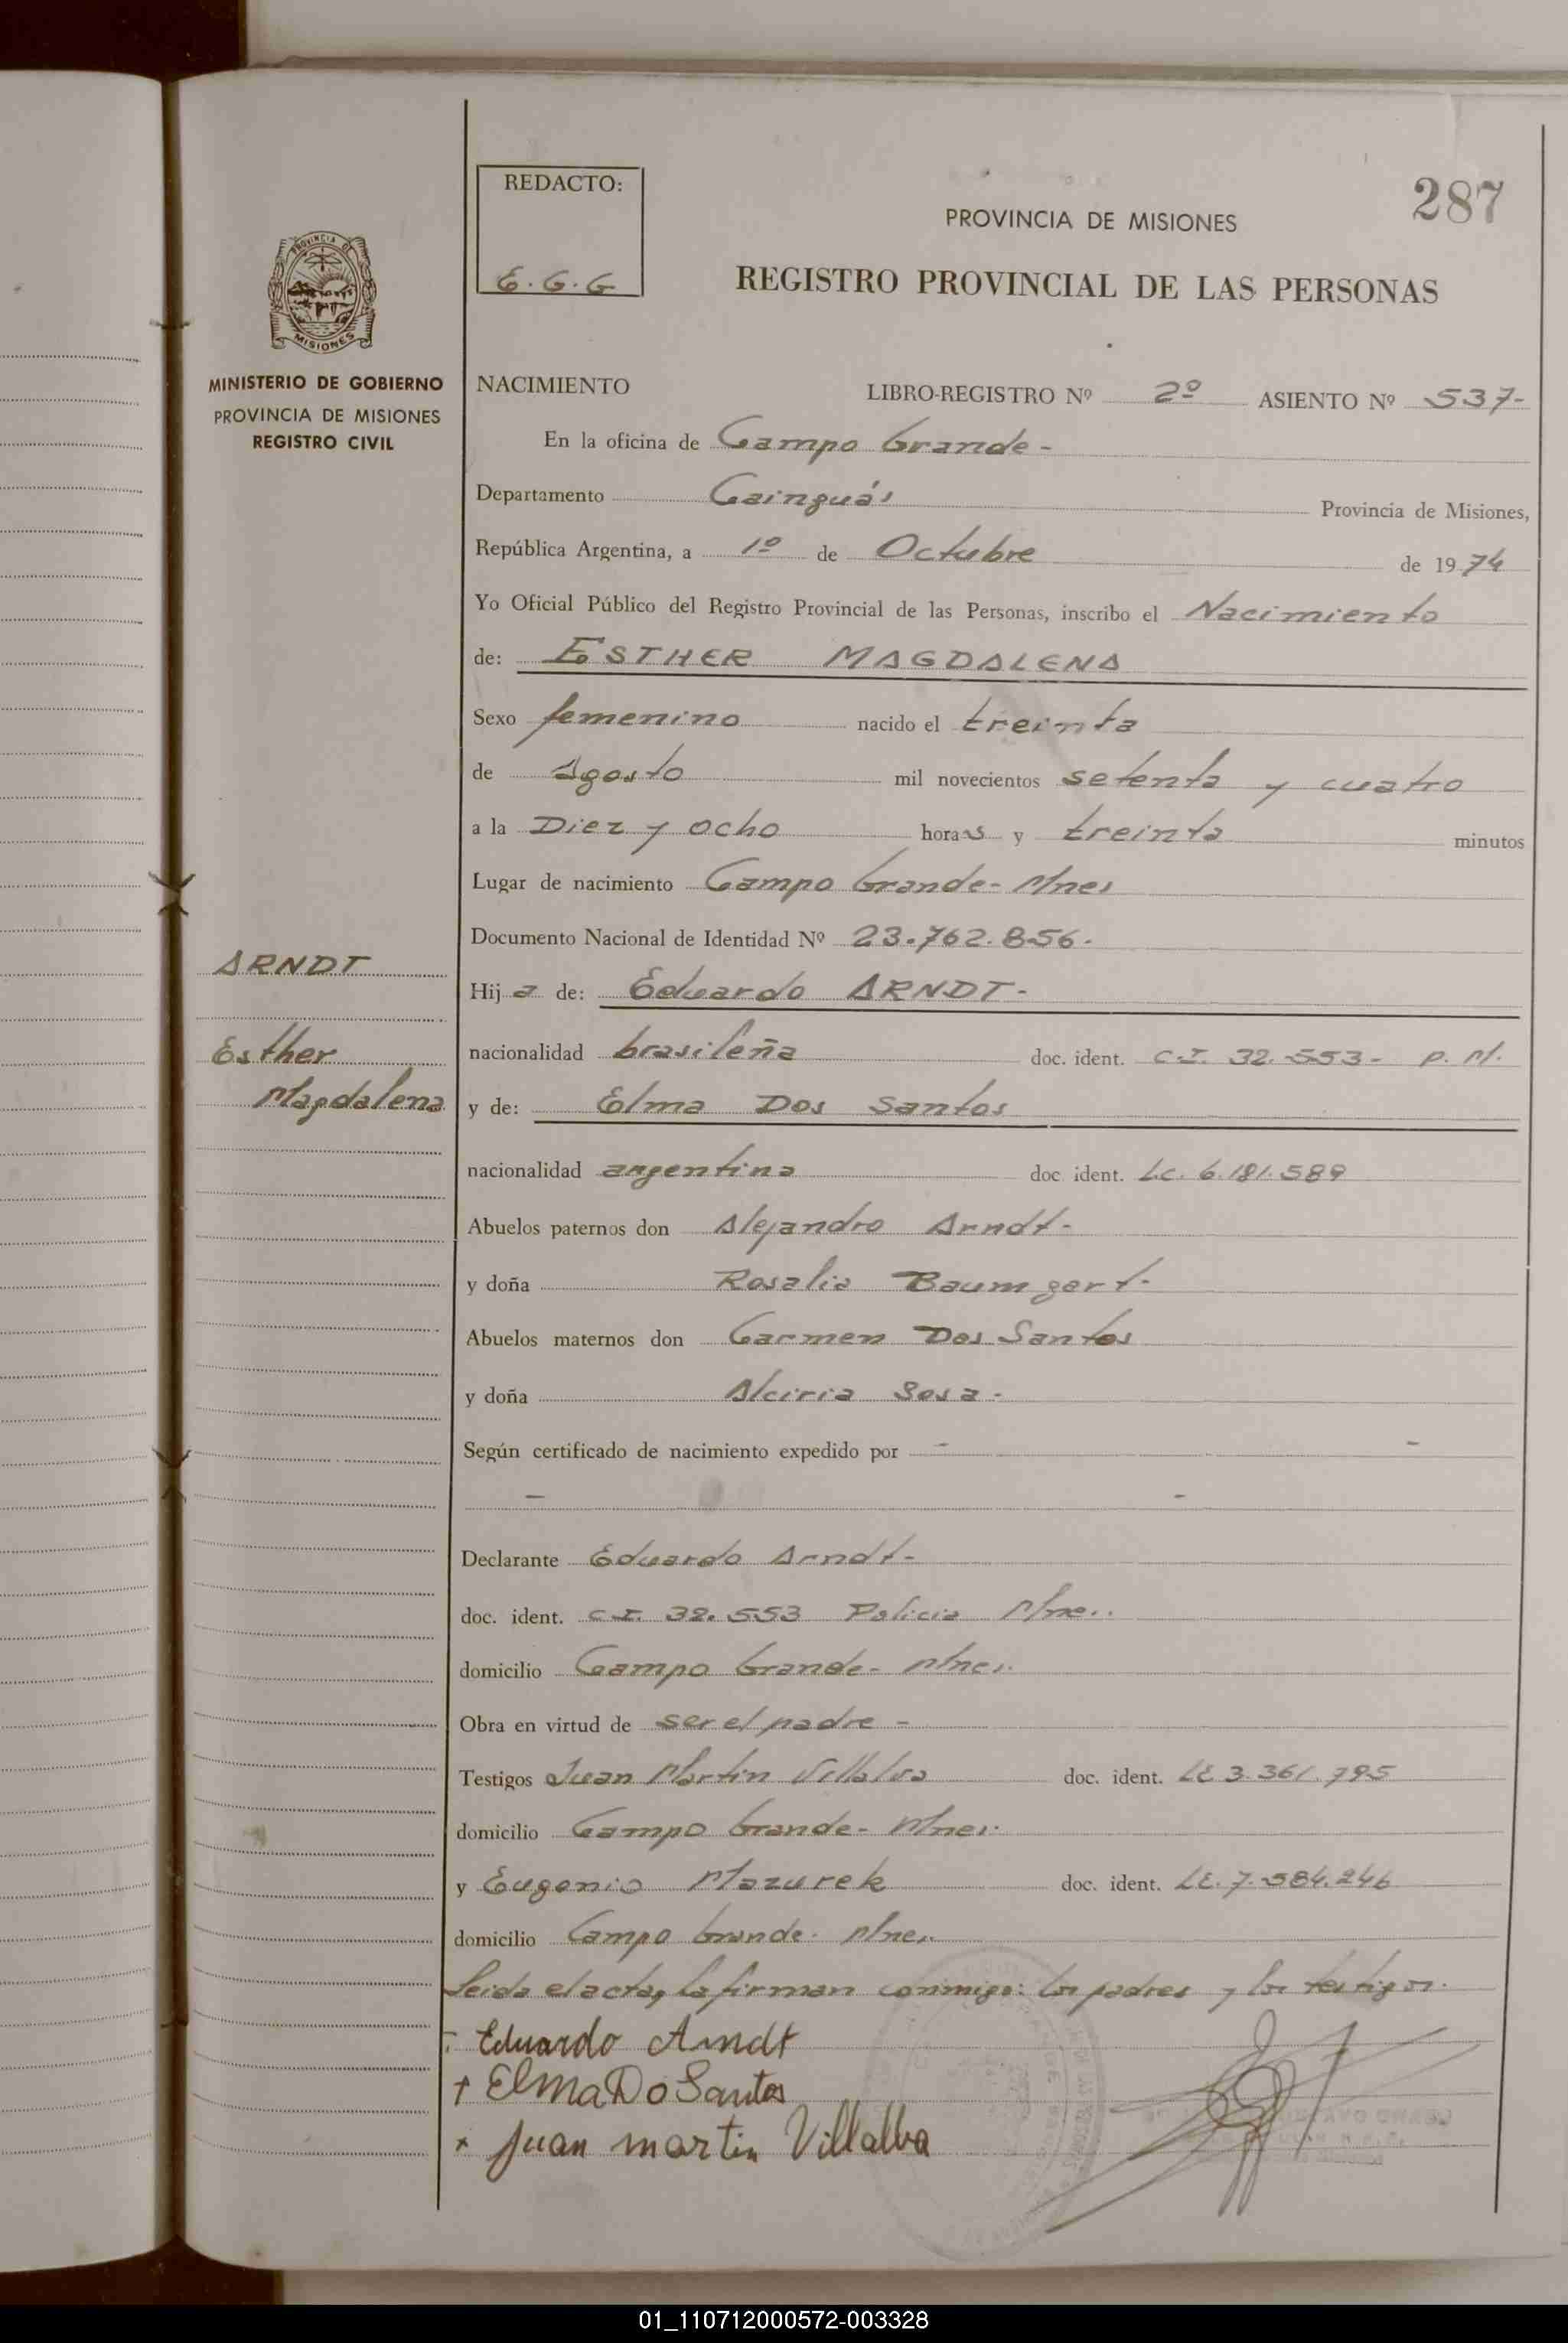 REDACTO:
E.G.G
287
PROVINCIA DE MISIONES
REGISTRO PROVINCIAL DE LAS PERSONAS
PROVINCIA DE
MISIONES
MINISTERIO DE GOBIERNO
PROVINCIA DE MISIONES
REGISTRO CIVIL
NACIMIENTO LIBRO-REGISTRO Nº 2º ASIENTO Nº 537-
En la oficina de Campo Grande-
Departamento Cainguás Provincia de Misiones,
República Argentina, a 1º de Octubre de 1974
Yo Oficial Público del Registro Provincial de las Personas, inscribo el Nacimiento
de: ESTHER MAGDALENA
Sexo femenino nacido el treinta
de Agosto mil novecientos setenta y cuatro
a la Diez y ocho horas y treinta minutos
Lugar de nacimiento Campo Grande- Mnes
Documento Nacional de Identidad Nº 23.762.856.
ARNDT
Esther
Magdalena
Hija de: Eduardo ARNDT-
nacionalidad brasileña doc. ident. C.I. 32.553- P. M.
y de: Elma Dos Santos
nacionalidad argentina doc. ident. L.C. 6.181.589
Abuelos paternos don Alejandro Arndt-
y doña Rosalia Baumgart-
Abuelos maternos don Carmen Dos Santos
y doña Alciria Sosa-
Según certificado de nacimiento expedido por - -
- -
Declarante Eduardo Arndt-
doc. ident. C.I. 32.553 Policia Mnes.
domicilio Campo Grande- Mnes.
Obra en virtud de ser el padre-
Testigos Juan Martin Villalva doc. ident. LE 3.361.795
domicilio Campo Grande- Mnes.
y Eugenio Mazurek doc. ident. LE. 7.584.246
domicilio Campo Grande. Mnes.
Leida el acta, la firman conmigo: los padres y los testigos.
Eduardo Arndt
+ Elma Do Santos
x Juan martin Villalba
01_110712000572-003328